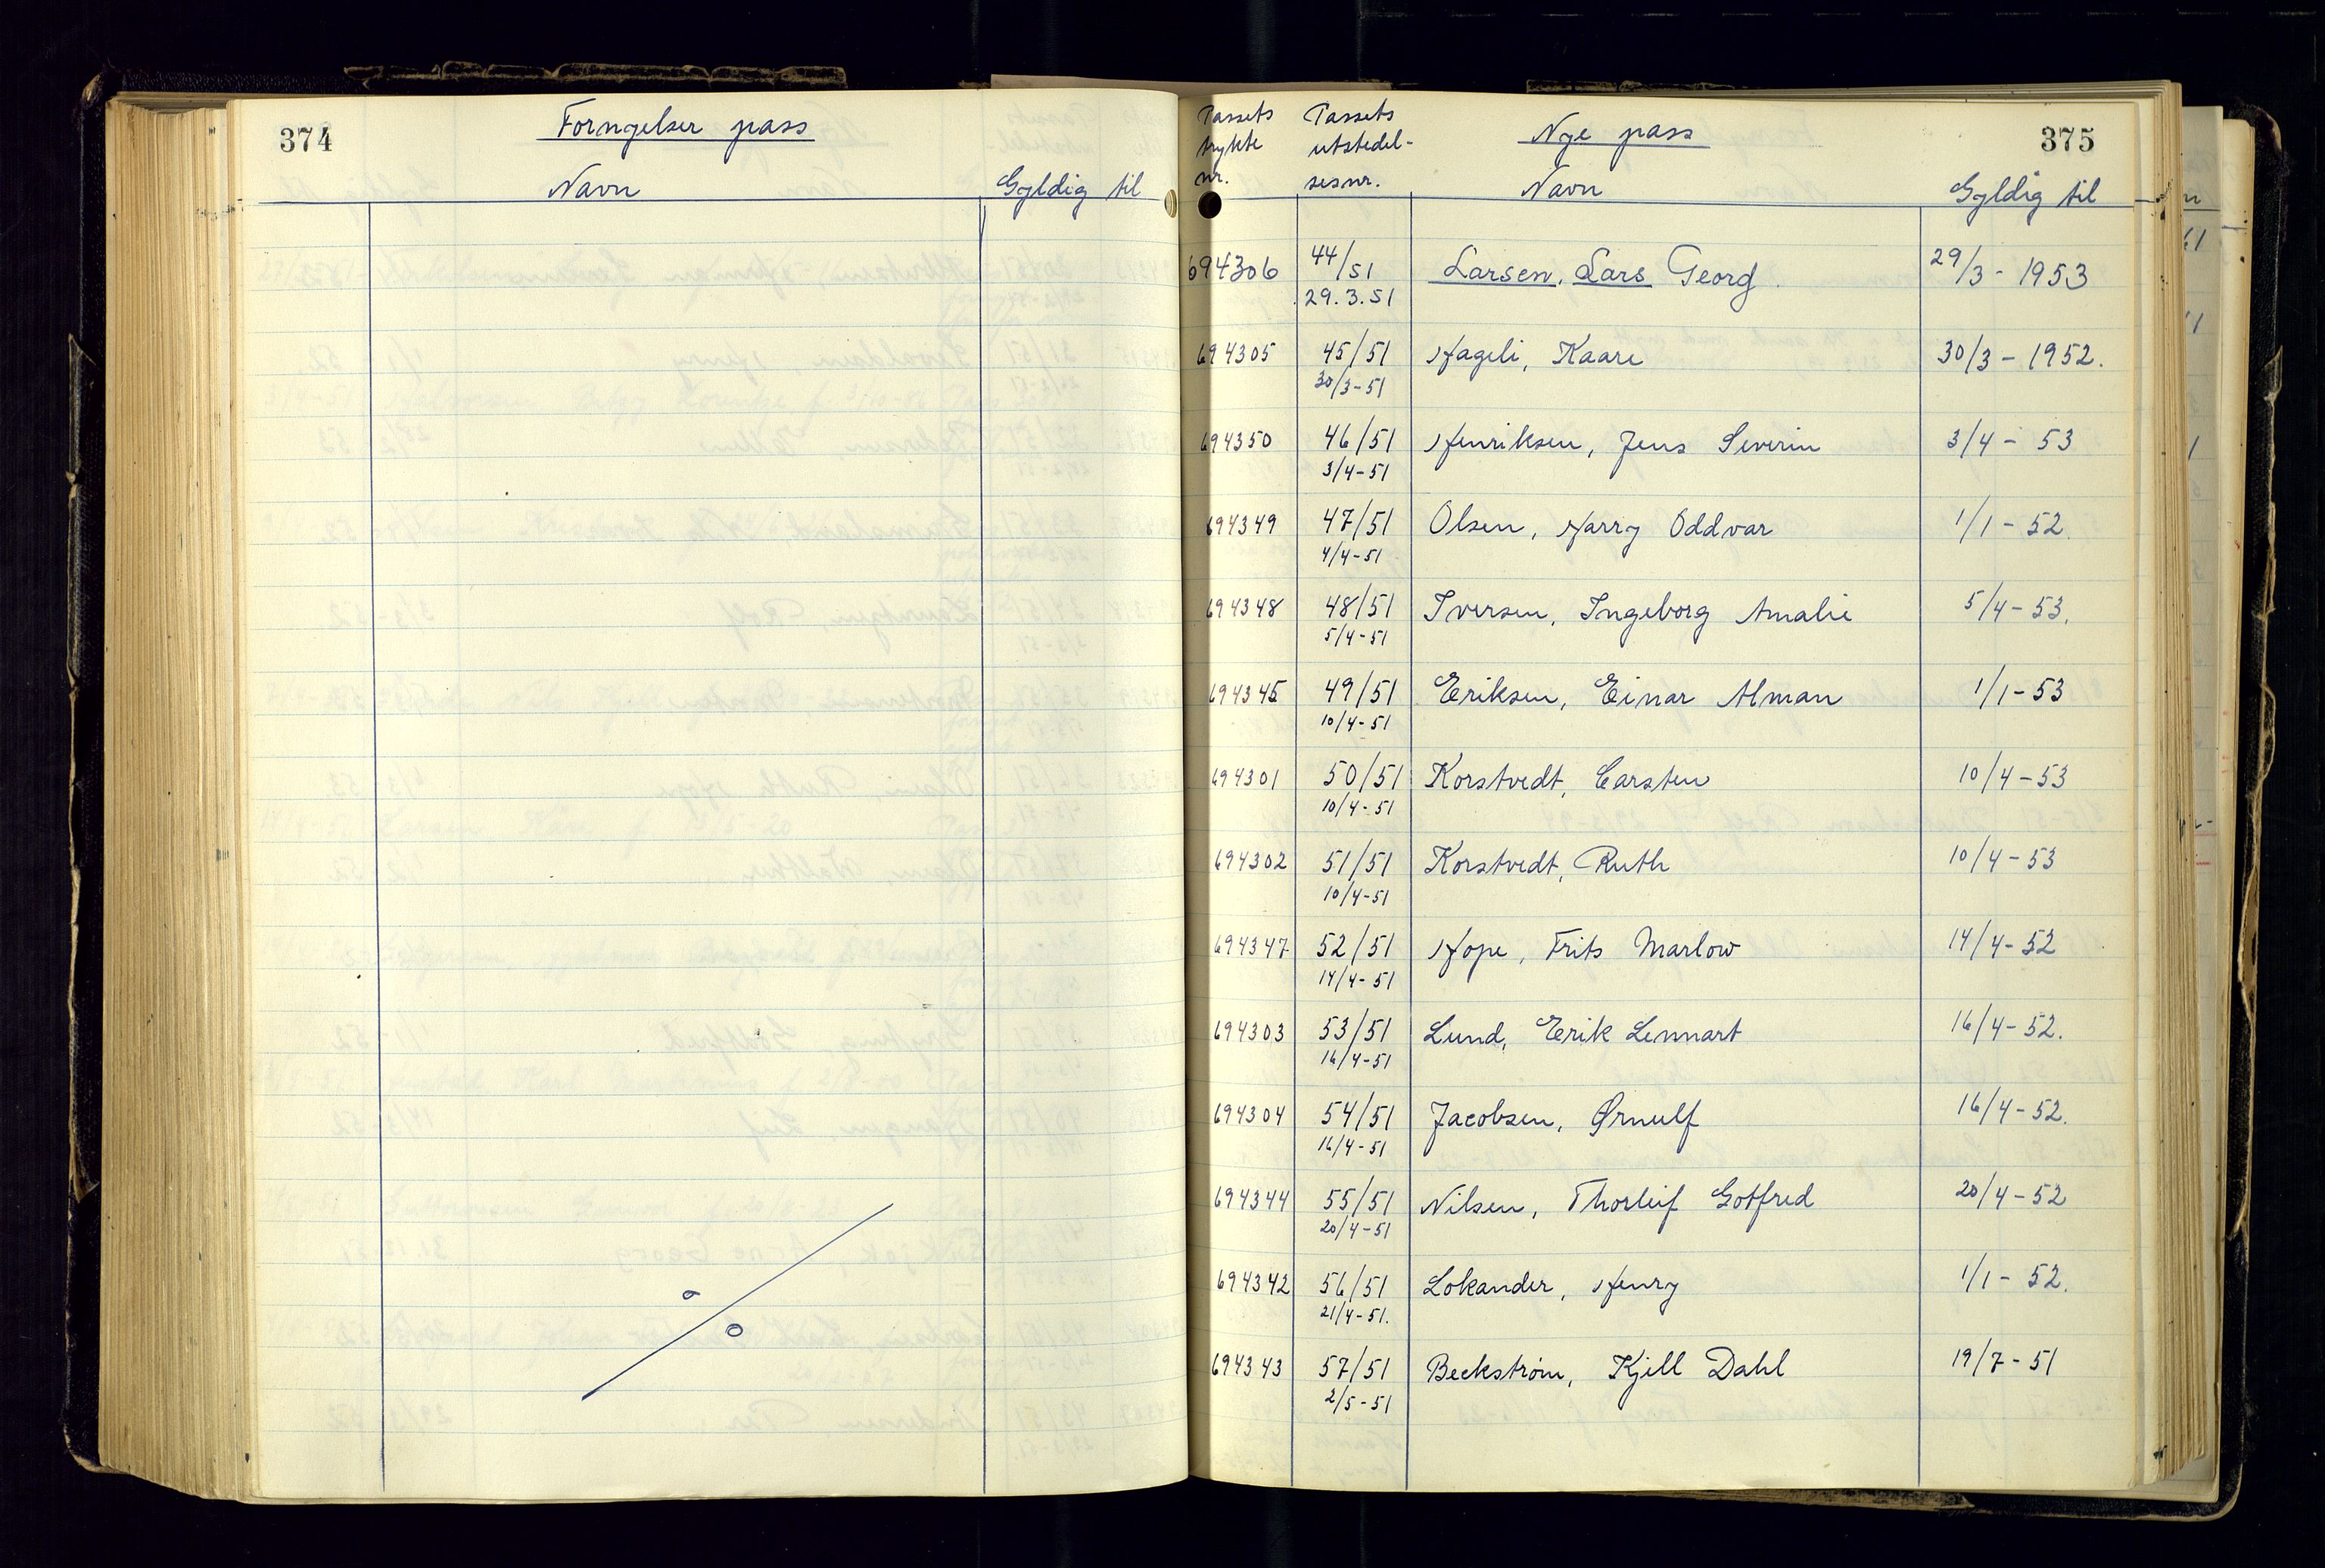 374
Fornyelser pass
Navn Gyldig til
Passets Passets
trykte utstedel-
nr. sesnr.
Nye pass
375
Navn Gyldig til
694306 44/51 Larsen, Lars Georg 29/3 - 1953
29.3.51
694305 45/51 Hageli, Kaare 30/3 - 1952.
30/3-51
694350 46/51 Henriksen, Jens Severin 3/4 - 53
3/4-51
694349 47/51 Olsen, Harry Oddvar 1/1 - 52.
4/4-51
694348 48/51 Iversen, Ingeborg Amalie 5/4 - 53.
5/4-51
694345 49/51 Eriksen, Einar Alman 1/1 - 53
10/4-51
694301 50/51 Korstvedt, Carsten 10/4 - 53
10/4-51
694302 51/51 Korstvedt, Ruth 10/4 - 53
10/4-51
694347 52/51 Hope, Frits Marlow 14/4 - 52
14/4-51
694303 53/51 Lund, Erik Lennart 16/4 - 52.
16/4-51
694304 54/51 Jacobsen, Ørnulf 16/4 - 52.
16/4-51
694344 55/51 Nilsen, Thorleif Gotfred 20/4 - 52
20/4-51
694342 56/51 Lokander, Henry 1/1 - 52.
21/4-51.
694343 57/51 Beckstrøm, Kjell Dahl 19/7 - 51
2/5-51